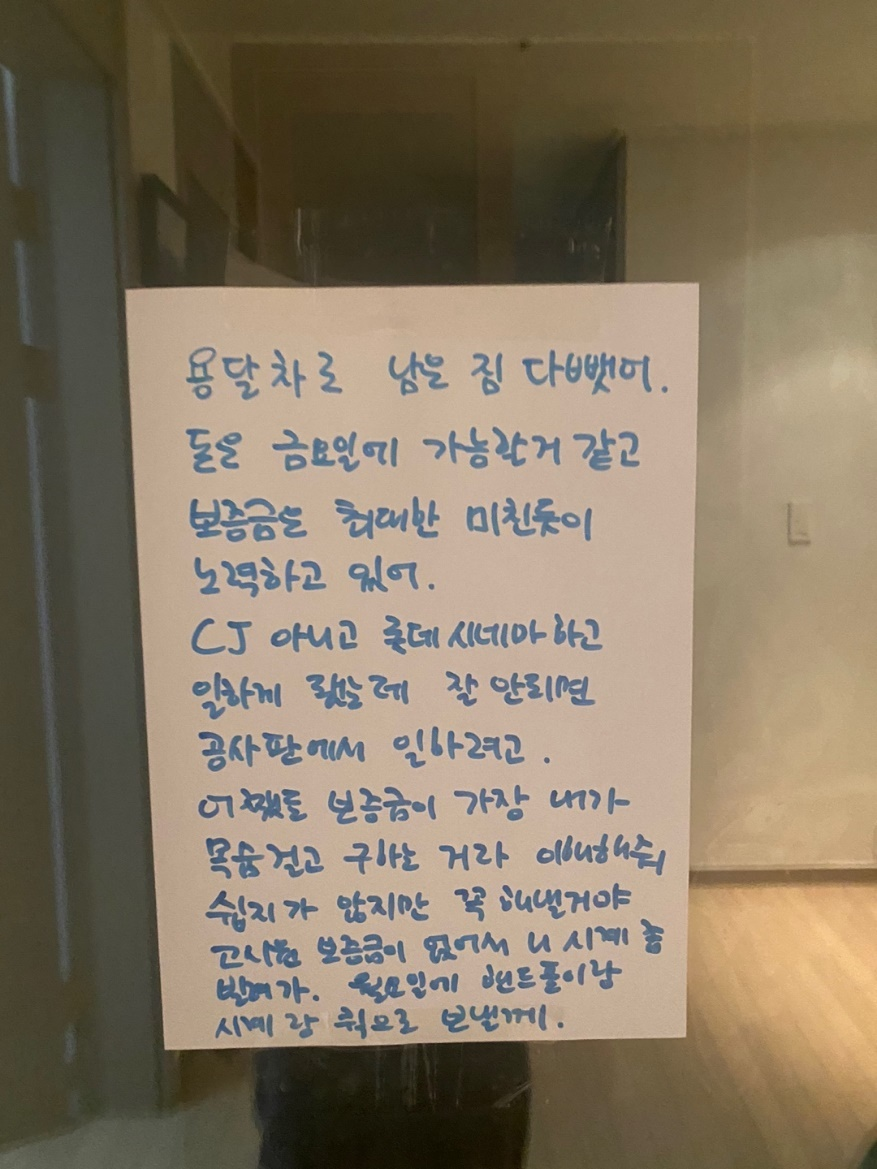 용달차로 남은 짐 다뺏어.
돈은 금요일에 가능한거 같고
보증금은 최대한 미친듯이
노력하고 있어.
CJ 아니고 롯데시네마 하고
일하게 됐는데 잘 안되면
공사판에서 일하려고.
어쨌든 보증금이 가장 내가
목숨걸고 구하는 거라 이해해줘
쉽지가 않지만 꼭 해낼거야
고시원 보증금이 없어서 니 시계 좀
빌려가. 월요일에 핸드폰이랑
시계랑 퀵으로 보낼께.